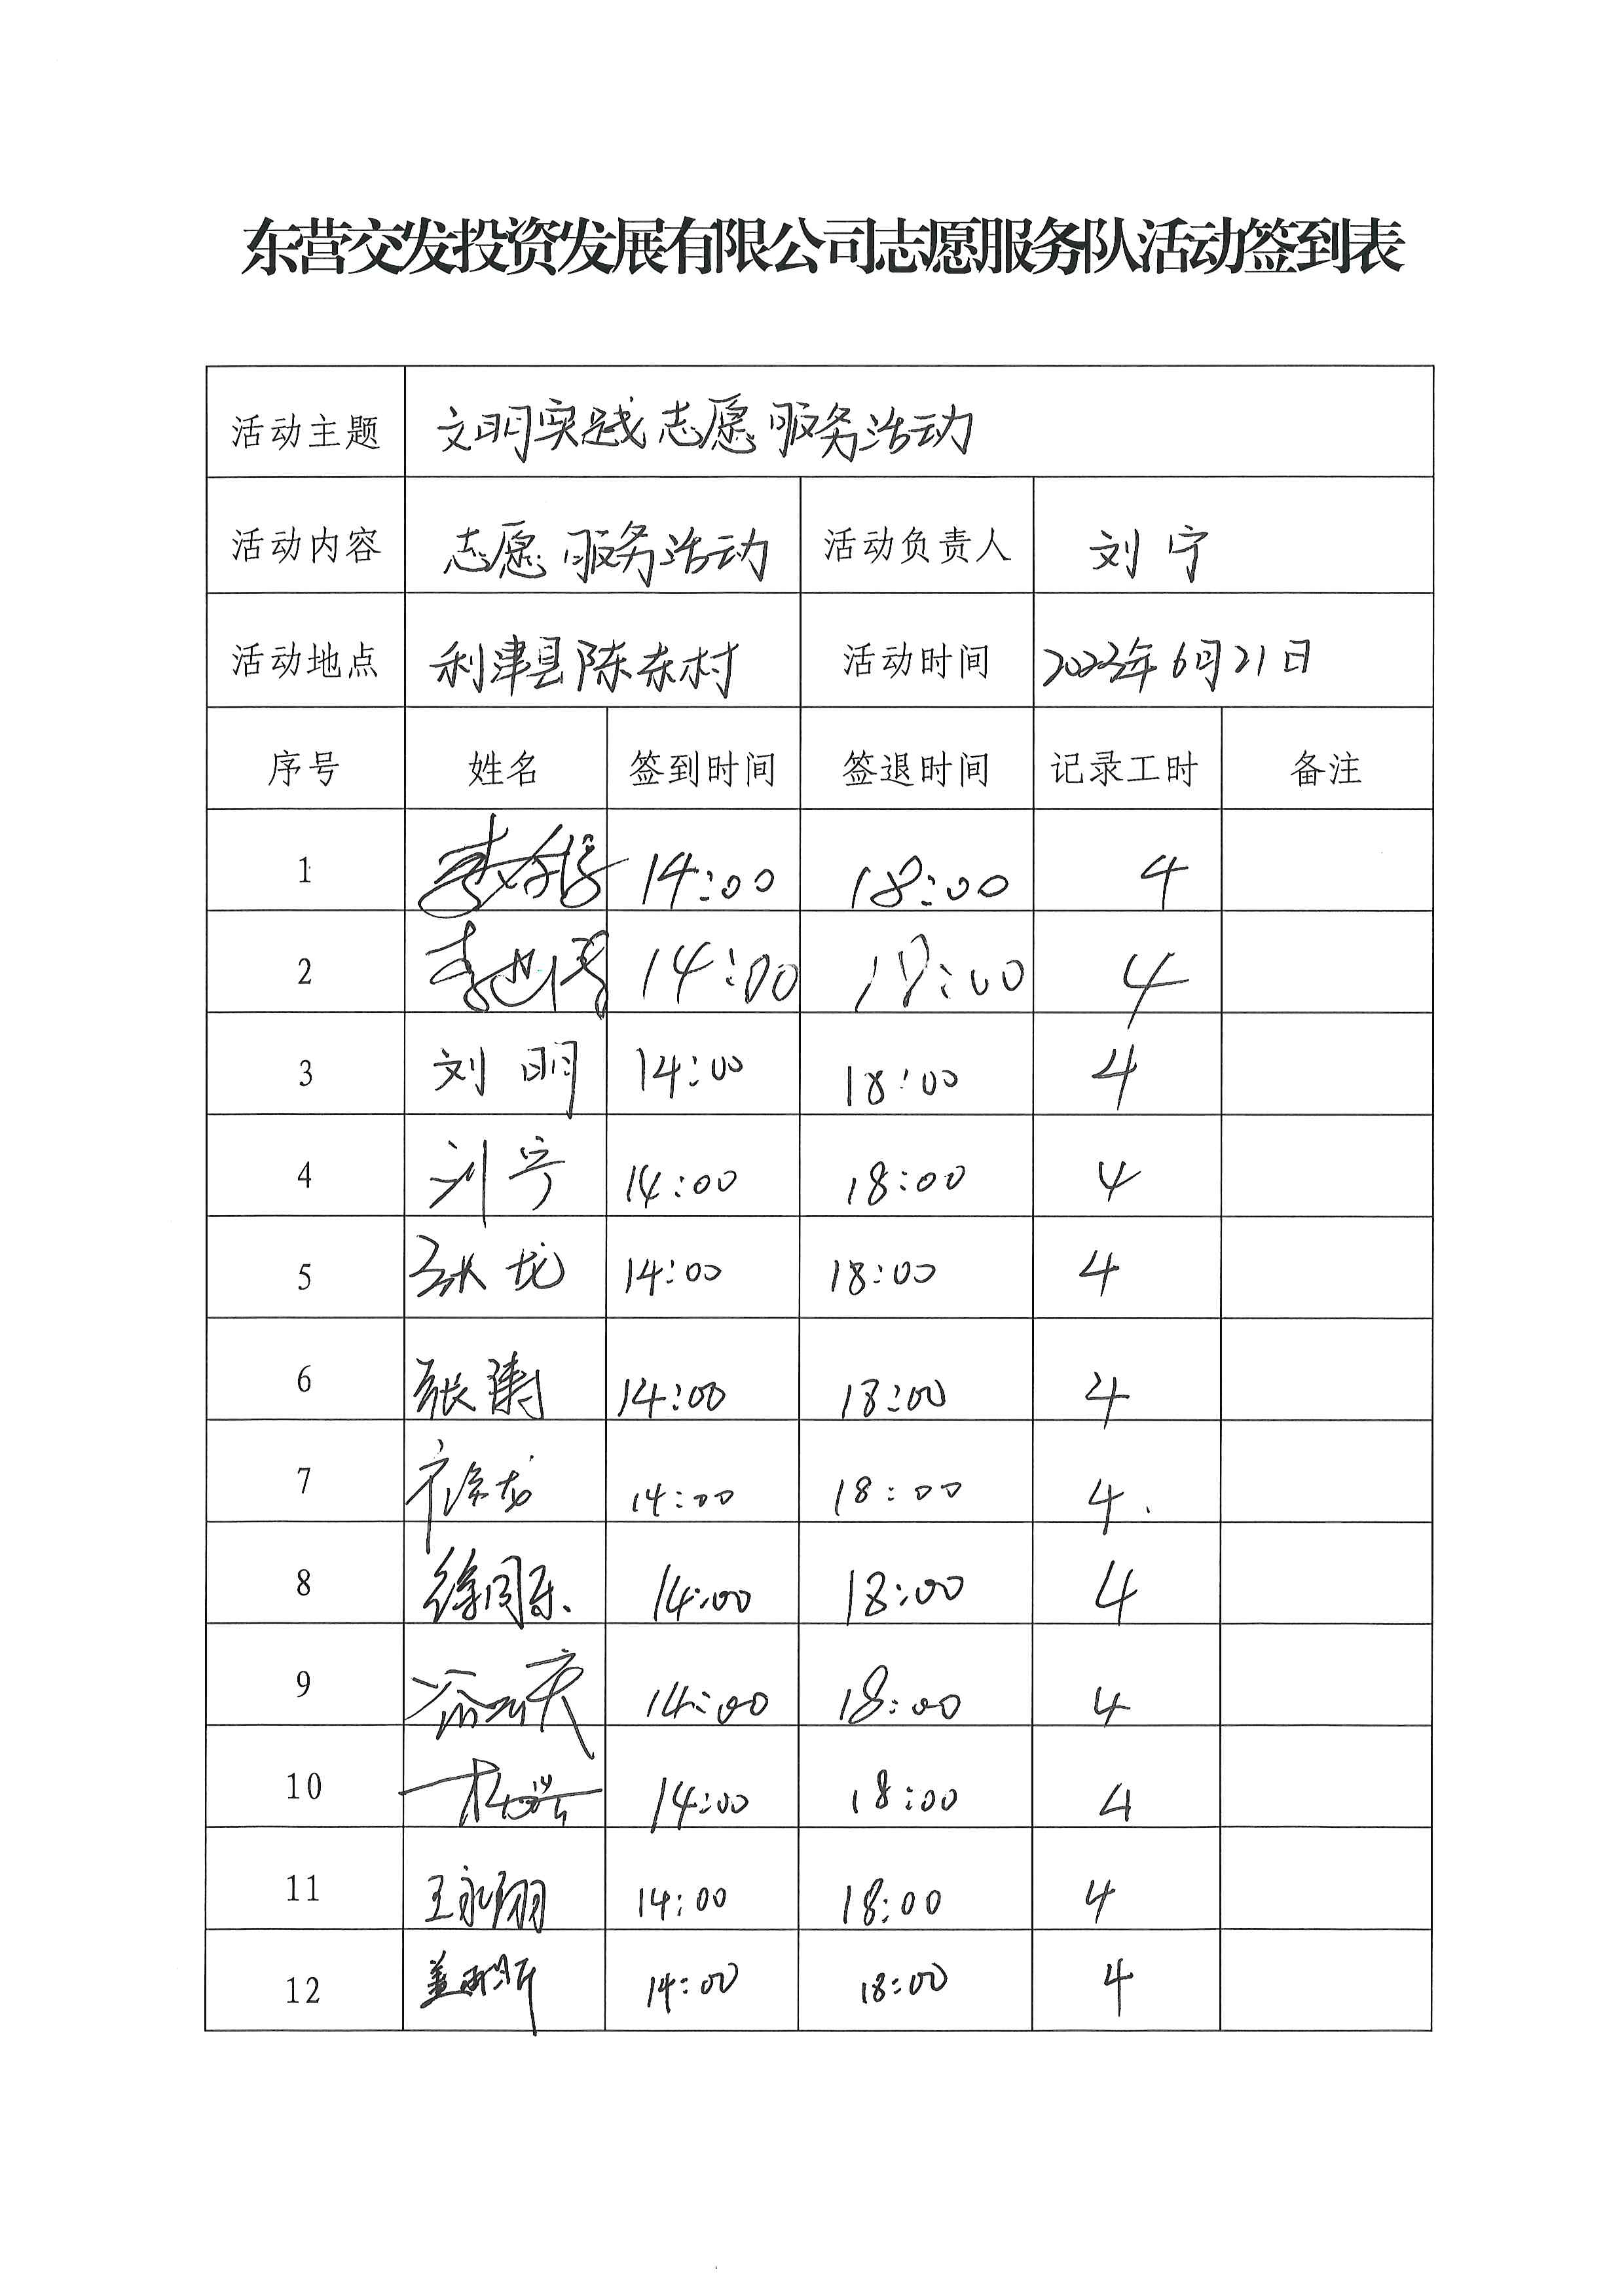 东营交发投资发展有限公司志愿服务队活动签到表
活动主题 文明实践志愿服务活动
活动内容 志愿服务活动 活动负责人 刘宁
活动地点 利津县陈东村 活动时间 2023年6月21日
序号 姓名 签到时间 签退时间 记录工时 备注
1 14:00 18:00 4
2 14:00 18:00 4
3 刘明 14:00 18:00 4
4 刘宁 14:00 18:00 4
5 张龙 14:00 18:00 4
6 张涛 14:00 18:00 4
7 14:00 18:00 4
8 14:00 18:00 4
9 14:00 18:00 4
10 14:00 18:00 4
11 王永翔 14:00 18:00 4
12 14:00 18:00 4